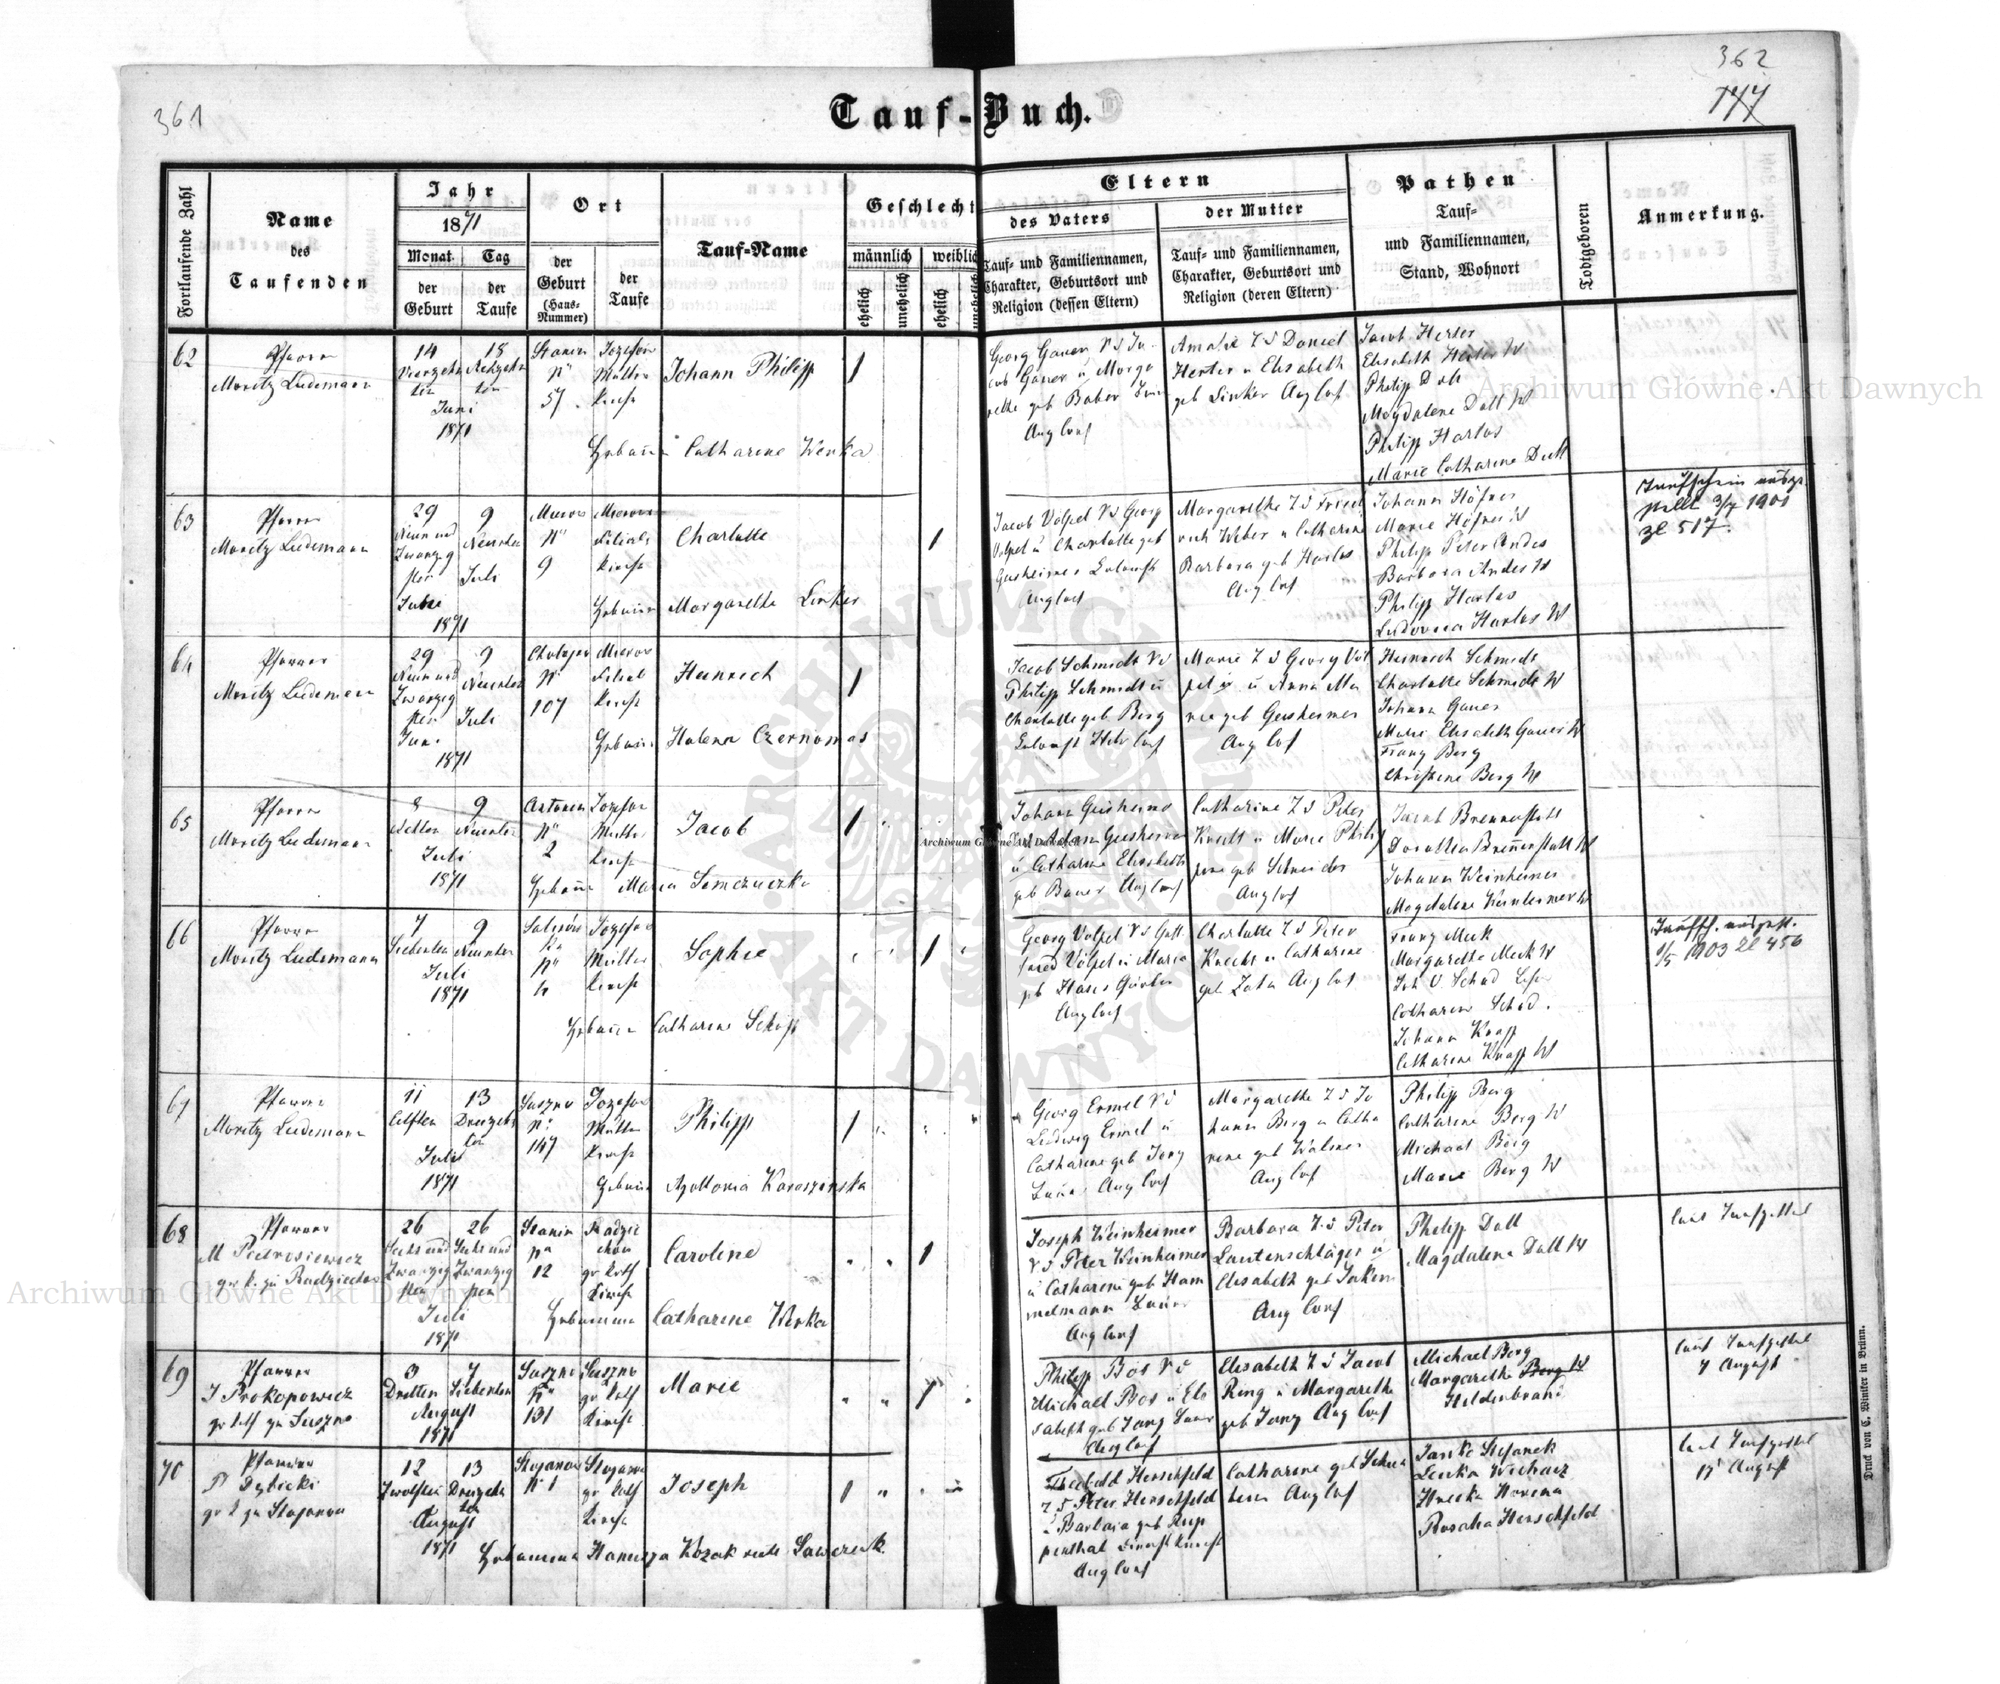 361
362
177
Tauf-Buch.
Fortlaufende Zahl
Name
des
Taufenden
Jahr
1871
Monat
Tag
der
Geburt
der
Taufe
Ort
der
Geburt
(Haus-
Nummer)
der
Taufe
Tauf-Name
Geschlecht
männlich
weiblich
ehelich
unehelich
ehelich
unehelich
Eltern
des Vaters
Tauf- und Familiennamen,
Charakter, Geburtsort und
Religion (dessen Eltern)
der Mutter
Tauf- und Familiennamen,
Charakter, Geburtsort und
Religion (deren Eltern)
Pathen
Tauf-
und Familiennamen,
Stand, Wohnort
Todtgeboren
Anmerkung.
62
Pfarrer
Moritz Ludemann
14
Vierzehn
ten
18
Achtzehn
ten
Juni
1871
Stanin
No
57
Jozefow
Mutter
Kirche
Johann Philipp
1
Hebamme Catharine Werka
Georg Gauer
Amalie T d Daniel
Herter u Elisabeth
geb Linker Aug Conf
Jacob Herter
Elisabeth Herter W
Philipp Doll
Magdalene Doll W
Philipp Harlos
Marie Catharine Doll
63
Pfarrer
Moritz Ludemann
29
Neun und
Zwanzig
sten
Juni
1871
9
Neunten
Juli
Mierow
No
9
Mierow
Filial
Kirche
Charlotte
1
Hebamme Margarethe Linker
Jacob Volpel V d Georg
Volpel u Charlotte geb
Geisheimer
Aug Conf
Margarethe T d Fried
rich Weber u Catharine
Barbara geb Harlos
Aug Conf
Johann Höfner
Marie Höfner W
Philipp Peter Andes
Barbara Andes W
Philipp Harlos
Ludovica Harlos W
Taufschein ausge
stellt 3/7 1901
Zl 517.
64
Pfarrer
Moritz Ludemann
29
Neun und
Zwanzig
sten
Juni
1871
9
Neunten
Juli
No
107
Mierow
Filial
Kirche
Heinrich
1
Hebamme Helena Czernomas
Jacob Schmidt V d
Philipp Schmidt u
Charlotte geb Berg
Marie T d Georg Vol
pel u Anna Ma
rie geb Geisheimer
Aug Conf
Heinrich Schmidt
Charlotte Schmidt W
Johann Gauer
Marie Elisabeth Gauer W
Franz Berg
Christine Berg W
65
Pfarrer
Moritz Ludemann
8
Achten
9
Neunten
Juli
1871
Antonin
No
2
Jozefow
Mutter
Kirche
Jacob
1
Hebamme Maria Semczuczka
Johann Geisheimer
V d Adam Geisheimer
u Catharine Elisabeth
geb Bauer Aug Conf
Catharine T d Peter
Knecht u Marie Philip
pine geb Schneider
Aug Conf
Jacob Brennestuhl
Dorothea Brennestuhl W
Johann Weinheimer
Magdalene Weinheimer W
66
Pfarrer
Moritz Ludemann
7
Siebenten
9
Neunten
Juli
1871
No
4
Jozefow
Mutter
Kirche
Sophie
1
Hebamme Catharine
Georg Volpel V d Gott
fried Volpel u Maria
Aug Conf
Charlotte T d Peter
Knecht u Catharine
Aug Conf
Franz Meck
Margarethe Meck W
Catharine Schad.
Johann Knapp
Catharine Knapp W
Taufsch. ausgest.
1/5 1903 Zl 456
67
Pfarrer
Moritz Ludemann
11
Eilften
13
Dreizehn
ten
Juli
1871
Suszno
No
147
Jozefow
Mutter
Kirche
Philipp
1
Hebamme Apollonia Karaszewska
Georg Ermel V d
Ludwig Ermel u
Catharine geb Jung
Bauer Aug Conf
Margarethe T d Jo
hann Berg u Catha
rine geb
Aug Conf
Philipp Berg
Catharine Berg W
Michael Berg
Marie Berg W
68
Pfarrer
M Pietrosiewicz
gr k. zu Radziechow
26
Sechs und
Zwanzig
sten
26
Sechs und
Zwanzig
sten
Juli
1871
Stanin
No
12
Radzie
chow
gr kath
Kirche
Caroline
1
Hebamme Catharine Werka
Joseph Weinheimer
V d Peter Weinheimer
u Catharine geb Ham
melmann Bauer
Aug Conf
Barbara T d Peter
Lautenschläger u
Elisabeth geb
Aug Conf
Philipp Doll
Magdalene Doll W
laut Taufzettel
69
Pfarrer
J Prokopowicz
gr kath zu Suszno
3
Dritten
7
Siebenten
August
1871
Suszno
No
131
Suszno
gr kath
Kirche
Marie
1
Philipp Bos V d
Michael Bos u Eli
sabeth geb Jung Bauer
Aug Conf
Elisabeth T d Jacob
Ring u Margarethe
geb Jung Aug Conf
Michael Berg
Margarethe Berg W
Heldenbrand
laut Taufzettel
7 August
70
Pfarrer
gr k zu Stojanow
12
Zwölften
13
Dreizehn
ten
August
1871
Stojanow
No 1
Stojanow
gr kath
Kirche
Joseph
1
Hebamme Hanusza Kozak recte Sawczuk.
Theobald Herschfeld
V d Peter Herschfeld
u Barbara geb Rup
penthal
Aug Conf
Aug Conf
Rosalia Herschfeld
laut Taufzettel
August
Druck von C. Winiker in Brünn.
Archiwum Główne Akt Dawnych
Archiwum Główne Akt Dawnych
Archiwum Główne Akt Dawnych
ARCHIWUM GŁÓWNE AKT DAWNYCH